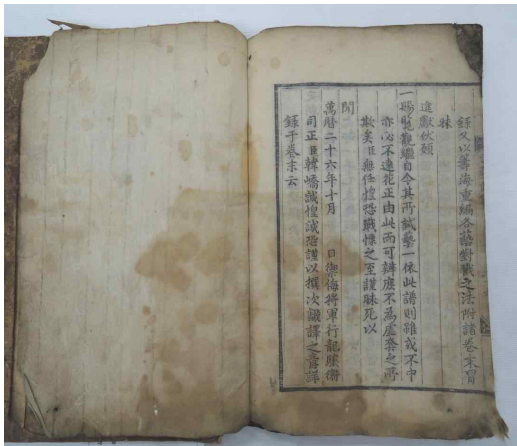 又以籌海重編各藝對戰之法附諸卷末冒
昧
進獻伏願
一賜覽觀繼自今其所試藝一依此譜則雖或不中
亦必不遠花正由此而可辨庶不為虛套之所
欺矣臣無任惶恐戰慄之至謹昧死以
聞
萬曆二十六年十月 日禦侮將軍行龍驤衛
司正臣韓嶠誠惶誠恐謹以撰次飜譯之意詳
錄于卷末云